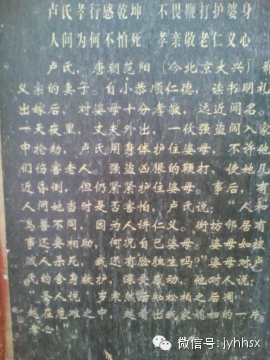 卢氏孝行感乾坤 不畏鞭打护婆身
人问为何不怕死 孝亲敬老仁义心
卢氏，唐朝范阳（今北京大兴）郑
义宗的妻子。自小恭顺仁德，读书明礼
出嫁后，对婆母十分孝敬，远近闻名。
一天夜里，丈夫外出，一伙强盗闯入家
中抢劫，卢氏用身体护住婆母，不许他
们伤害老人。强盗凶狠的鞭打，使她几
近昏倒，但仍紧紧护住婆母。事后，有
人问她当时是否害怕，卢氏说：“人和
鸟兽不同，因为人讲仁义。街坊邻居有
事还要相助，何况自己婆母。婆母如被
贼人杀死，我还有脸独生吗？”婆母对卢
氏的舍身救护，深受感动，他对人
“圣人说，岁寒然后知松柏之后凋
越在危难之中，越看出我儿媳的一片
孝心。”
微信号: jyhhsx